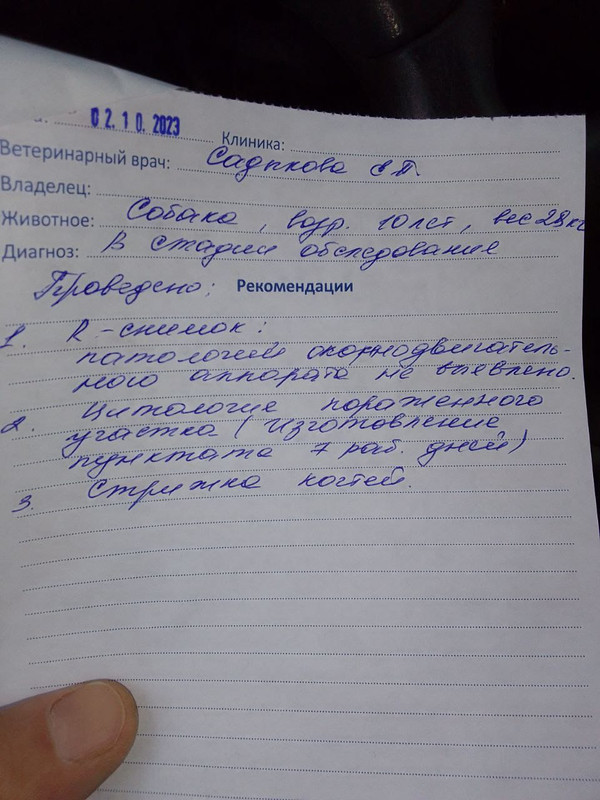 02.10.2023
Клиника:
Ветеринарный врач: Садыкова Е П.
Владелец:
Животное: Собака, возр. 10 лет, вес 28 кг
Диагноз: В стадии обследование
Проведено: Рекомендации
1. R-снимок:
патологий опорнодвигатель-
ного аппарата не выявлено.
2. Цитология пораженного
участка (Изготовление
пунктата 7 раб. дней)
3. Стрижка когтей.